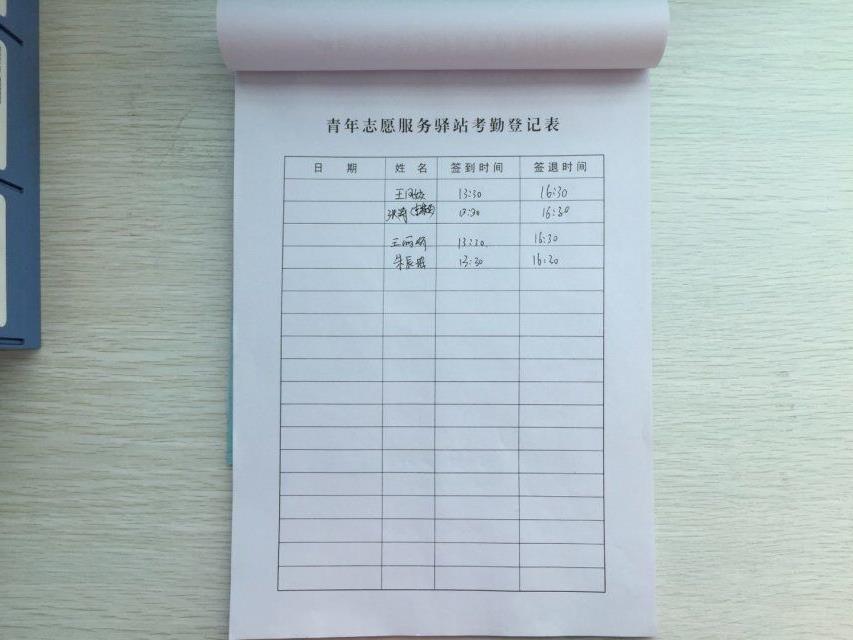 青年志愿服务驿站考勤登记表
日 期 姓 名 签到时间 签退时间
13:30 16:30
16:30
王丽娟 13:30 16:30
朱辰 13:30 16:30